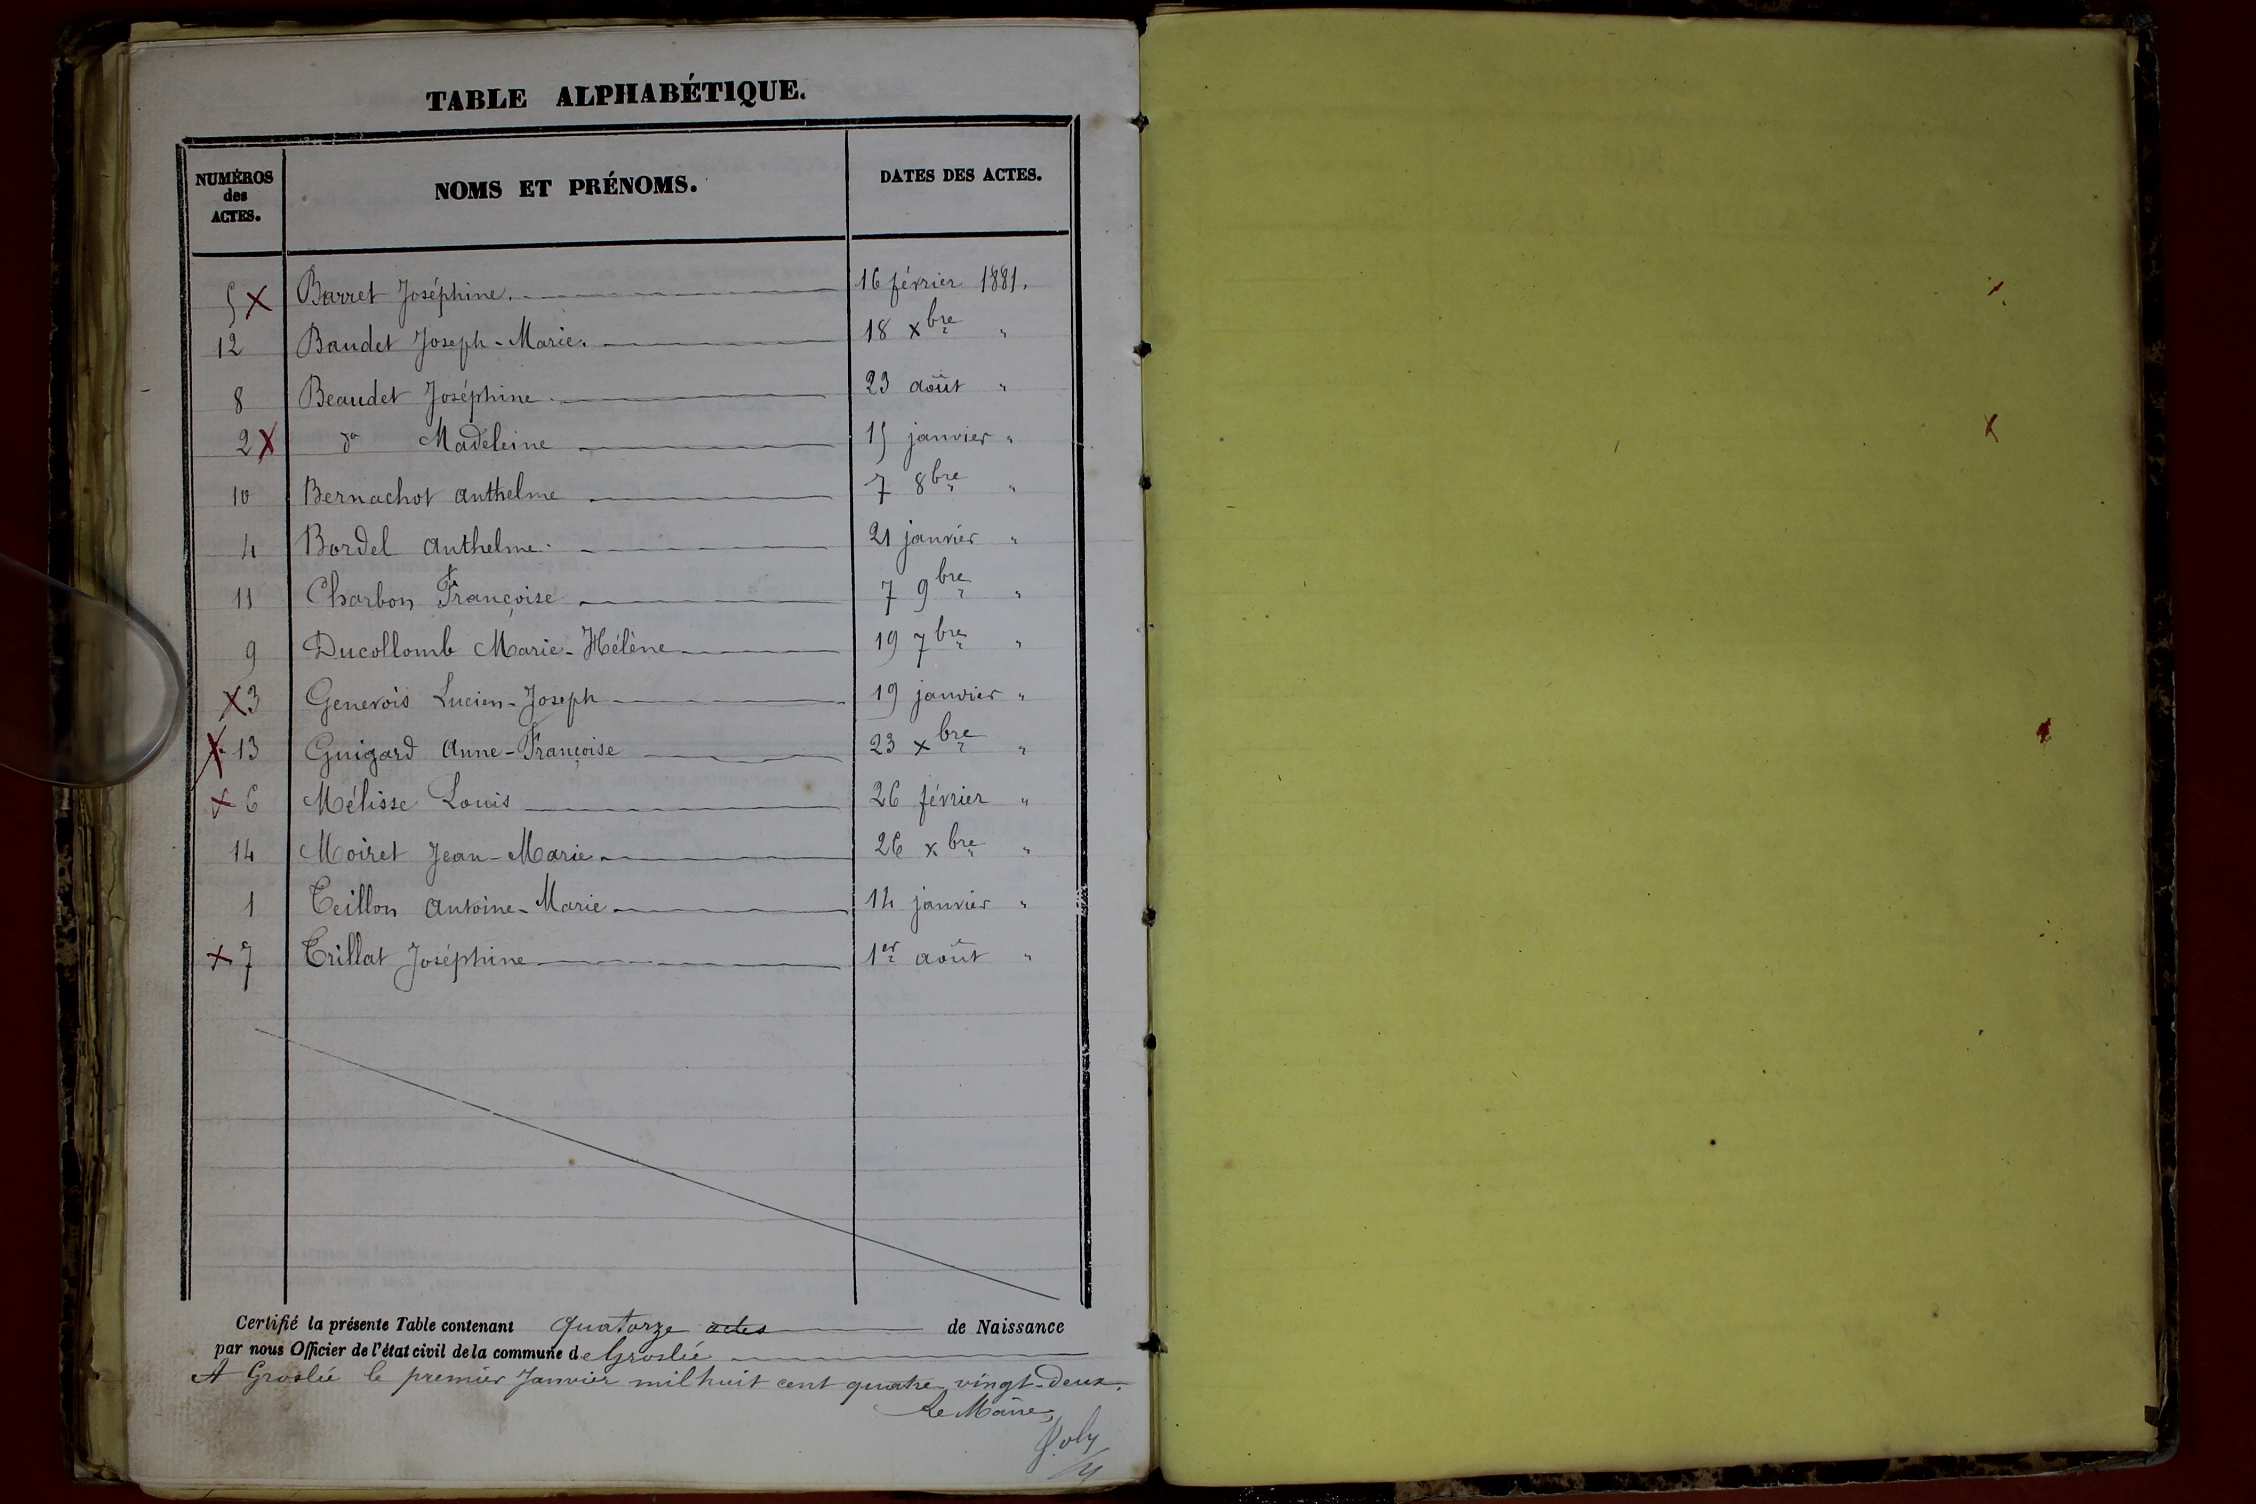 TABLE ALPHABÉTIQUE.
NUMÉROS des ACTES. NOMS ET PRÉNOMS. DATES DES ACTES.
5 X Barret Joséphine. 16 février 1881.
12 Baudet Joseph-Marie. 18 xbre "
8 Beaudet Joséphine 23 août "
2 X do Madeleine 15 janvier "
10 Bernachot Anthelme 7 8bre "
4 Bordel Anthelme 21 janvier "
11 Charbon Françoise 7 9bre "
9 Ducollomb Marie-Hélène 19 7bre "
X 3 Genevois Lucien-Joseph 19 janvier "
X 13 Guigard Anne-Françoise 23 xbre "
X 6 Mélisse Louis 26 février "
14 Moiret Jean-Marie 26 xbre "
1 Teillon Antoine-Marie 14 janvier "
X 7 Trillat Joséphine 1er août "
Certifié la présente Table contenant quatorze actes de Naissance
par nous Officier de l'état civil de la commune de Groslée
A Groslée le premier Janvier mil huit cent quatre vingt-deux.
Le Maire,
Poly